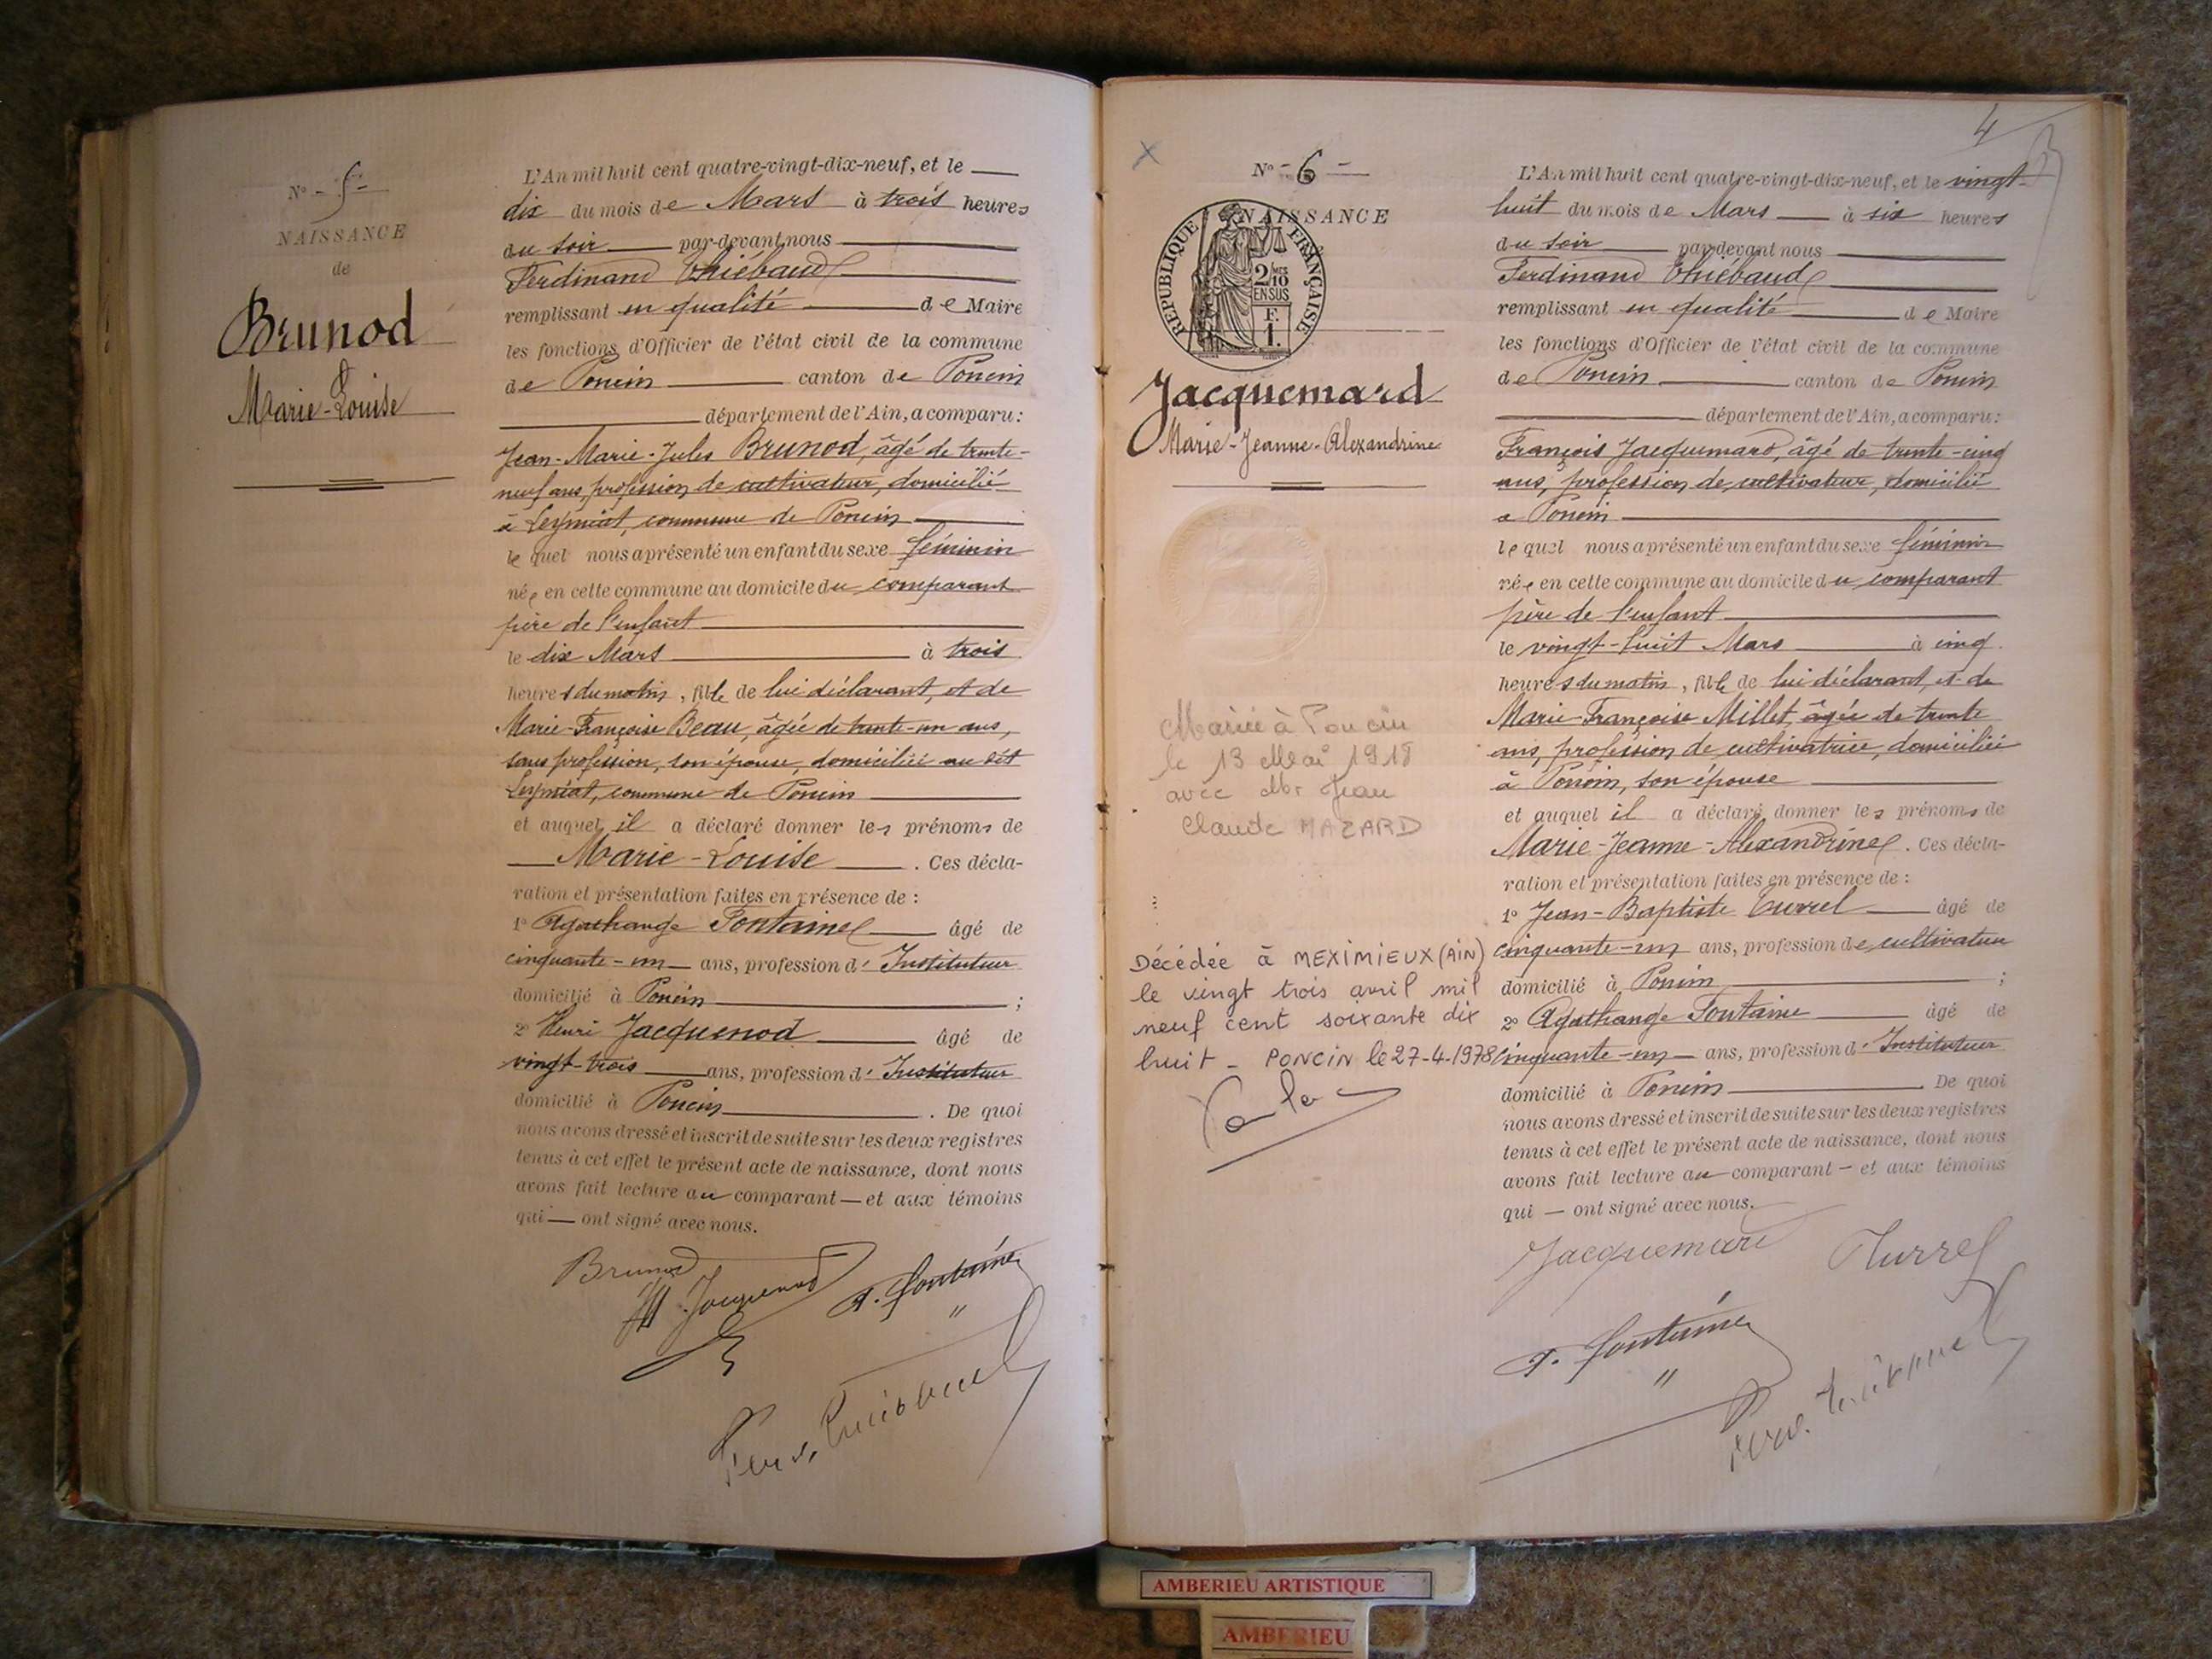 N° - 5 -
NAISSANCE
de
Brunod
Marie-Louise
L'An mil huit cent quatre-vingt-dix-neuf, et le
dix du mois de Mars à trois heures
du soir par-devant nous
Ferdinand Thiébaud
remplissant en qualité de Maire
les fonctions d'Officier de l'état civil de la commune
de Poncin canton de Poncin
département de l'Ain, a comparu:
Jean-Marie-Jules Brunod, âgé de trente-
neuf ans, profession de cultivateur, domicilié
à Leymiat, commune de Poncin
lequel nous a présenté un enfant du sexe féminin
née en cette commune au domicile du comparant
père de l'enfant
le dix Mars à trois
heures du matin, fille de lui déclarant, et de
Marie-Françoise Beau, âgée de trente-un ans,
sans profession, son épouse, domiciliée au dit
Leymiat, commune de Poncin
et auquel il a déclaré donner les prénoms de
Marie-Louise . Ces décla-
ration et présentation faites en présence de :
1° Agathange Fontaine âgé de
cinquante-un ans, profession d'Instituteur
domicilié à Poncin ;
2° Henri Jacquenod âgé de
vingt-trois ans, profession d'Instituteur
domicilié à Poncin . De quoi
nous avons dressé et inscrit de suite sur les deux registres
tenus à cet effet le présent acte de naissance, dont nous
avons fait lecture au comparant — et aux témoins
qui — ont signé avec nous.
Brunod
H. Jacquenod A. Fontaine
Ferd. Thiébaud
4
N° - 6 -
NAISSANCE
REPUBLIQUE FRANÇAISE
2/10
EN SUS
F.
1.
Jacquemard
Marie-Jeanne-Alexandrine
Mariée à Poncin
le 13 Mai 1918
avec Mr Jean
Claude MAZARD
Décédée à MEXIMIEUX (AIN)
le vingt trois avril mil
neuf cent soixante dix
huit - PONCIN le 27-4-1978
L'An mil huit cent quatre-vingt-dix-neuf, et le vingt-
huit du mois de Mars à six heures
du soir par devant nous
Ferdinand Thiébaud
remplissant en qualité de Maire
les fonctions d'Officier de l'état civil de la commune
de Poncin canton de Poncin
département de l'Ain, a comparu:
François Jacquemard, âgé de trente-cinq
ans, profession de cultivateur, domicilié
à Poncin
lequel nous a présenté un enfant du sexe féminin
née en cette commune au domicile du comparant
père de l'enfant
le vingt-huit Mars à cinq
heures du matin, fille de lui déclarant, et de
Marie-Françoise Millet, âgée de trente
ans, profession de cultivatrice, domiciliée
à Poncin, son épouse
et auquel il a déclaré donner les prénoms de
Marie-Jeanne-Alexandrine . Ces décla-
ration et présentation faites en présence de :
1° Jean-Baptiste Turrel âgé de
cinquante-un ans, profession de cultivateur
domicilié à Poncin ;
2° Agathange Fontaine âgé de
cinquante-un ans, profession d'Instituteur
domicilié à Poncin . De quoi
nous avons dressé et inscrit de suite sur les deux registres
tenus à cet effet le présent acte de naissance, dont nous
avons fait lecture au comparant — et aux témoins
qui — ont signé avec nous.
Jacquemard Turrel
A. Fontaine
Ferd. Thiébaud
AMBERIEU ARTISTIQUE
AMBERIEU